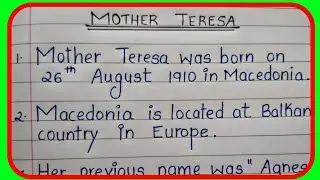 MOTHER TERESA
1. Mother Teresa was born on
26th August 1910 in Macedonia.
2. Macedonia is located at Balkan
country in Europe.
Her previous name was "Agnes